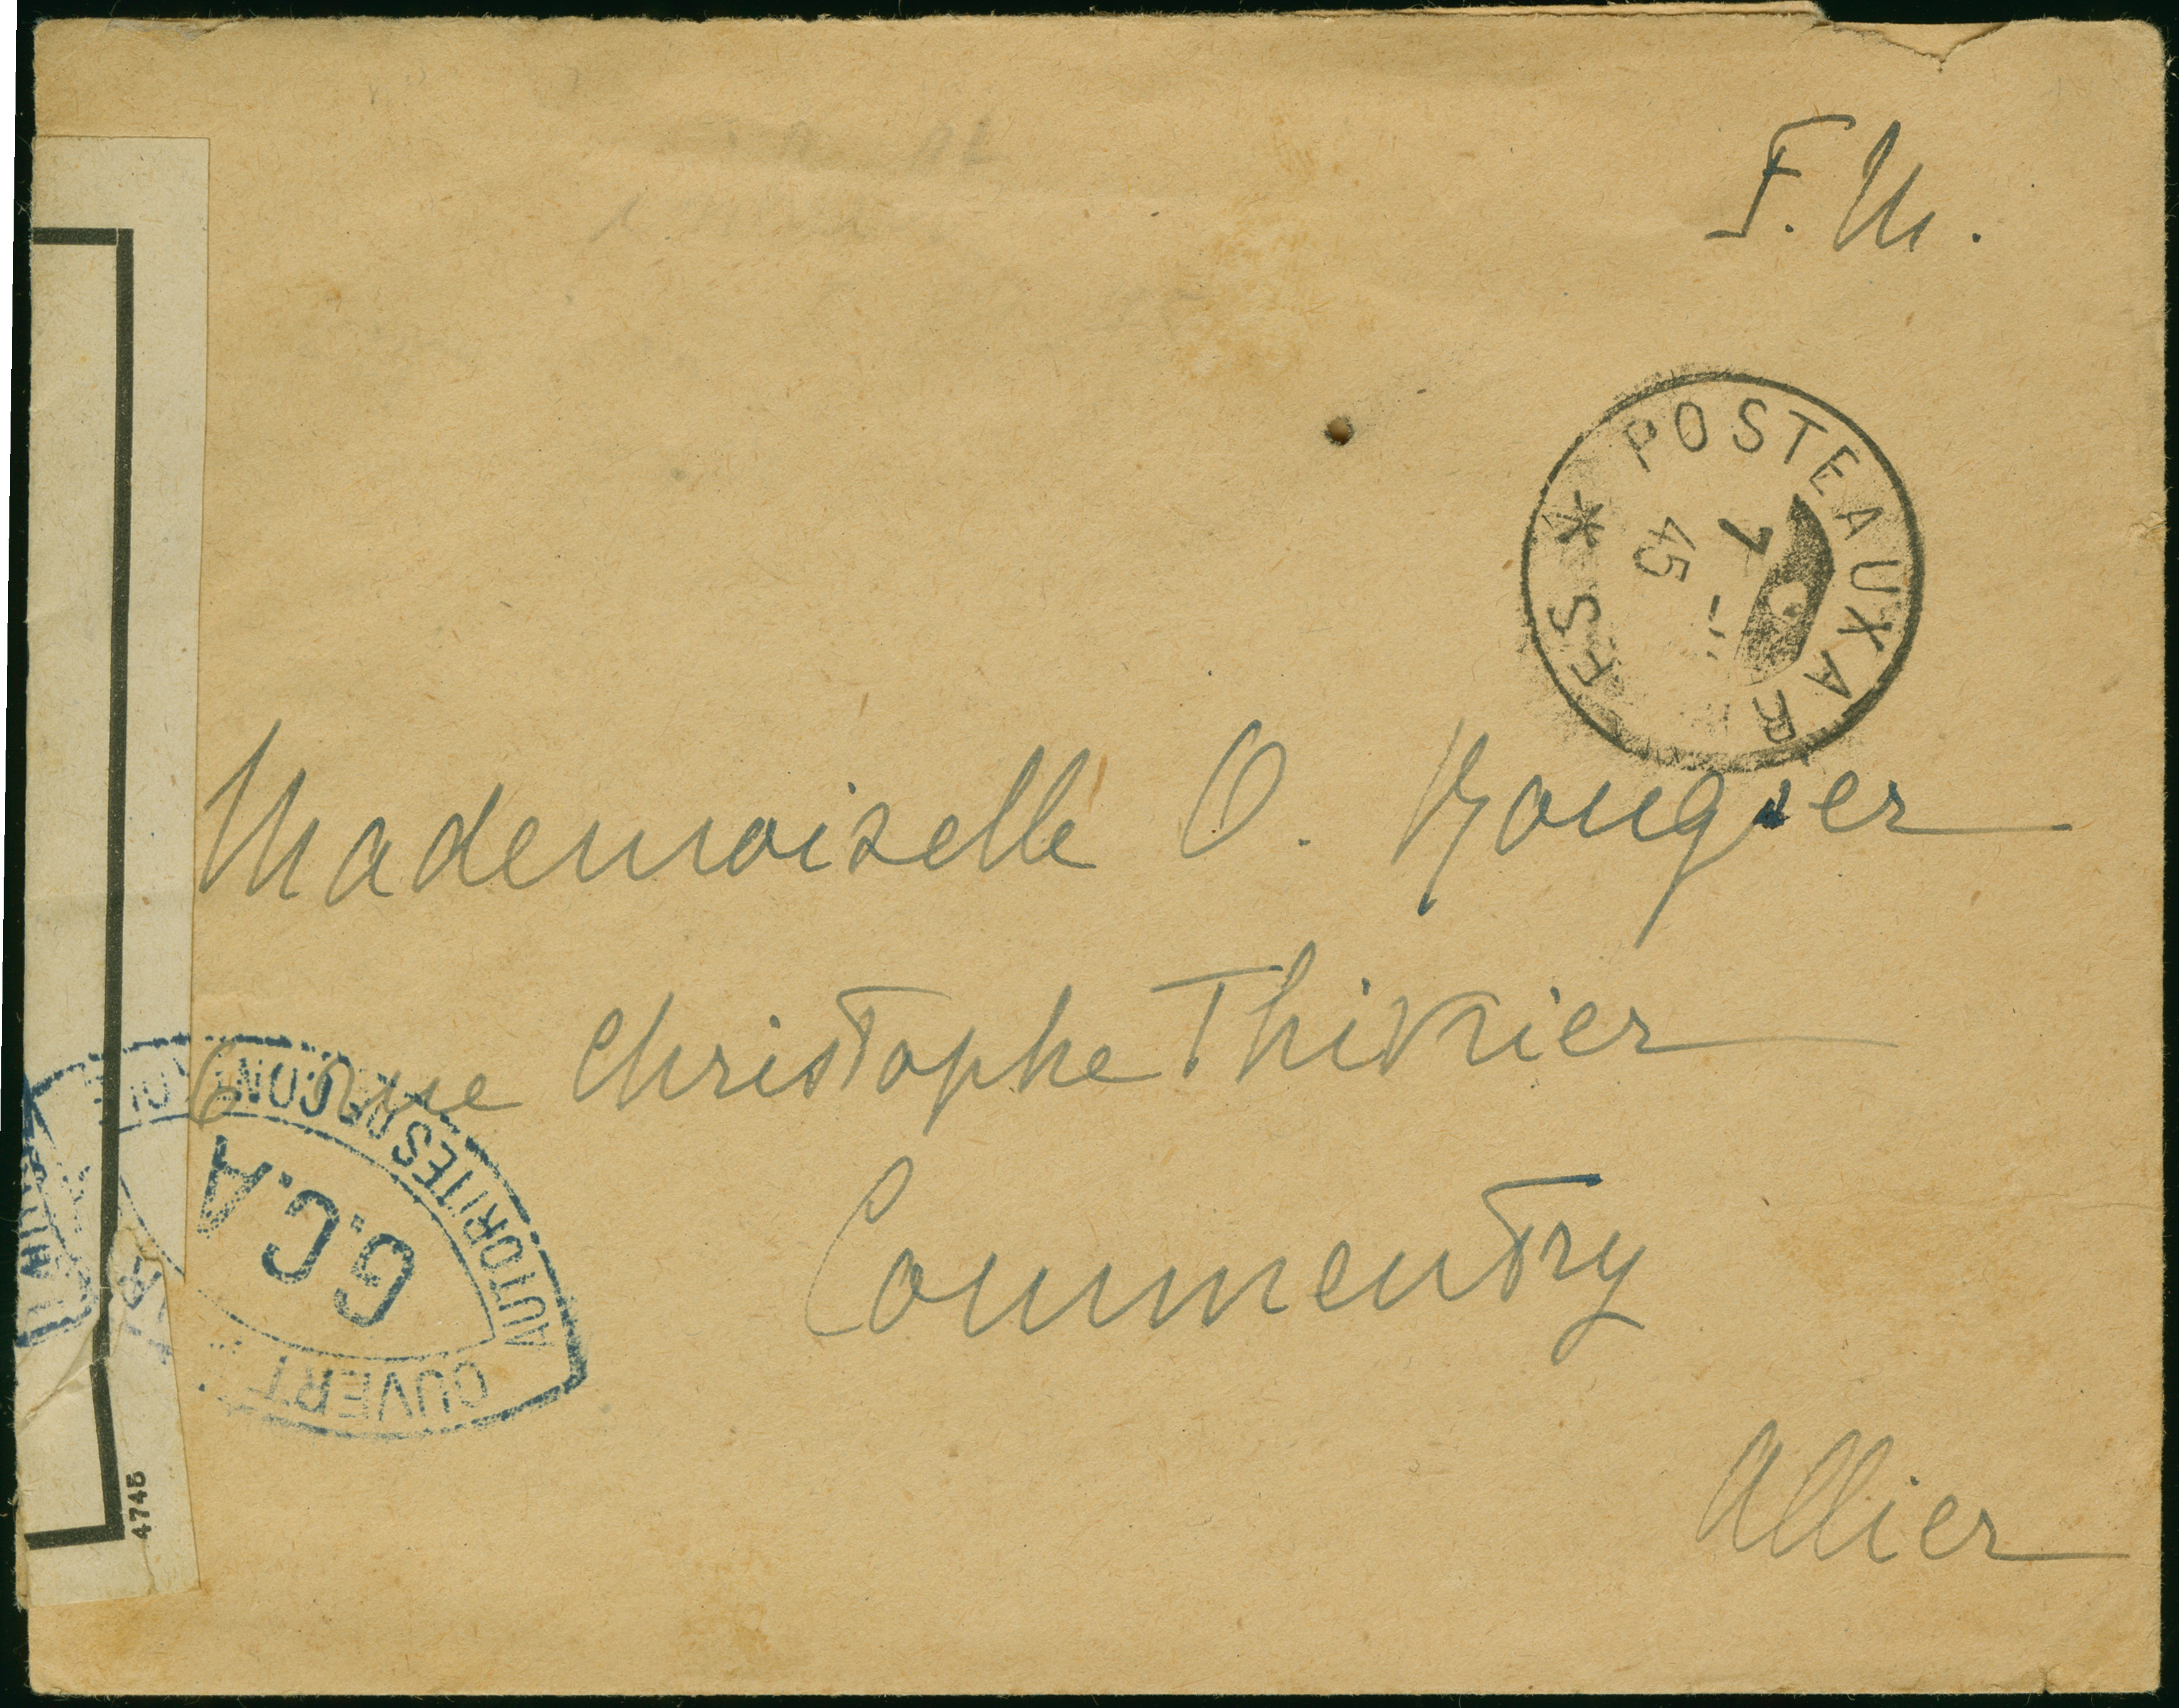 F. M.
POSTE AUX AR ES *
7
45
Mademoiselle O. Rougier
6 rue Christophe Thivrier
Commentry
Allier
OUVERT
AUTORITES
G.C.A
4745